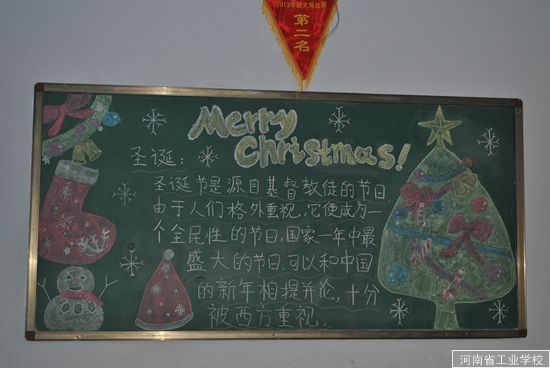 第二名
Merry
Christmas!
圣诞:
圣诞节是源自基督教徒的节日,
由于人们格外重视,它便成为一
个全民性的节日,国家一年中最
盛大的节日,可以和中国
的新年相提并论,十分
被西方重视.
河南省工业学校